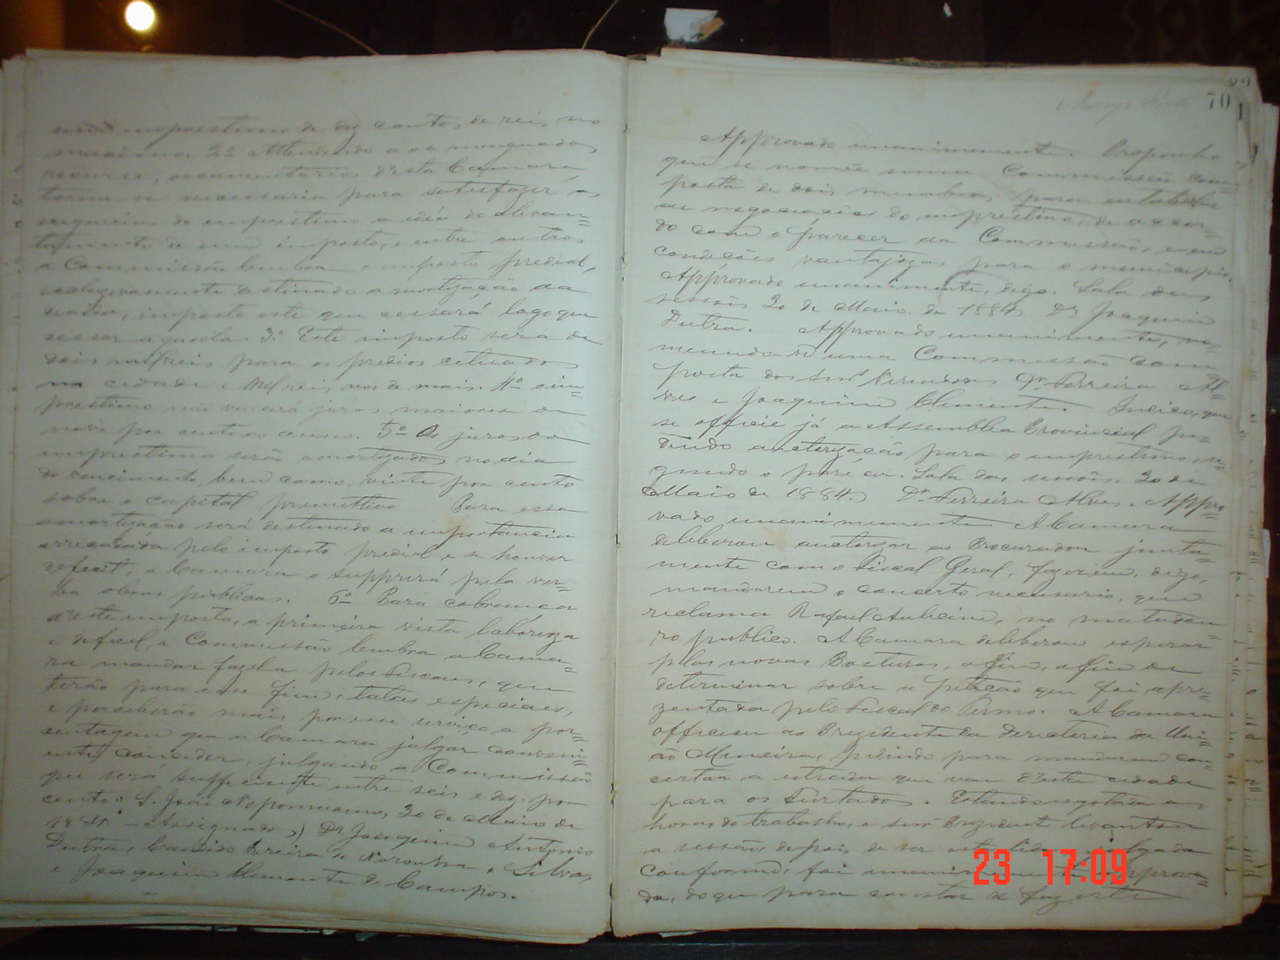 um imprestimo de dez contos de reis no
maximo. 2º Attendendo a os minguados
recursos, orcamentarios desta Camara
torna se necessario para satisfazer, as
do imprestimo a idéa do alevan=
tamento de um imposto, e entre outros
a Commissão lembra o imposto predial,
exclusivamente destinado a mortização da
imposto este que cessará logo que
cessar aquela. 3º Este imposto será de
dois mil reis para os predios citúados
na cidade e mil reis, nos de mais. 4º O im=
prestimo não vencerá juros maiores de
nove por cento ao anno. 5º Os juros do
imprestimo serão amortizados no dia
do vencimento, bem como, vinte por cento
sobre o capital Para essa
amortização será destinado a importancia
arrecadada pelo imposto predial e se houver
deficit, a Camara o supprirá pela ver=
ba obras publicas. 6º Para cobrança
d'este imposto, a primeira vista laborioza
e dificil, a Commissão lembra a Cama=
ra mandar fazela pelos Fiscaes, que
terão para esse fim, talões especiaes,
e perceberão mais por esse serviço a por=
sentagem que a Camara julgar conveni=
ente conceder, julgando a Commissão
que será sufficiente entre seis e dez por
cento. S. João Nepomuceno, 20 de Maio de
1884 - Assignados) Dr Joaquim Antonio
Dutra, Camido Pereira de Noronha e Silva,
e Joaquim Clemente de Campos.
70
Approvado unanimemente. Proponho
que se nomêe uma Commissão com=
posta de dois membros para entabolar
as negociações do imprestimo, de accor=
do com o parecer da Commissão, e em
condições vantajozas para o municipio.
Approvado unanimente, digo. Sala das
sessões 20 de Maio de 1884 Dr Joaquim
Dutra. Approvado unanimente, no=
meando-se uma Commissão com=
posta dos Snrs Veriadores Dr Ferreira Al=
ves e Joaquim Clemente. Indico, que
se officie já a Assemblea Provincial pe=
dindo autorização para o imprestimo, se=
gundo o parecer. Sala das sessões. 20 de
Maio de 1884. Dr Ferreira Alves. Appro=
vado unanimemente. A Camara
deliberou autorizar ao Procurador junta=
mente com o Fiscal Geral, fazerem, digo,
mandarem o concerto necessario, que
reclama Rafael no matadou=
ro publico. A Camara deliberou esperar
pelas novas Posturas, a fim, a fim de
determinar sobre a petição que foi apre=
zentada pelo Fiscal do Termo. A Camara
officiou ao Prezidente da Directoria da Uni=
ão Mineira, pedindo para mandarem con=
certar a estrada que vem d'esta cidade
para os Furtados. Estando esgotada as
horas do trabalho, o snr Prezidente levantou
a sessão, depois de ser esta lida e julgada
conforme, foi unanimemente approva=
da, do que para constar se faz esta
23 17:09